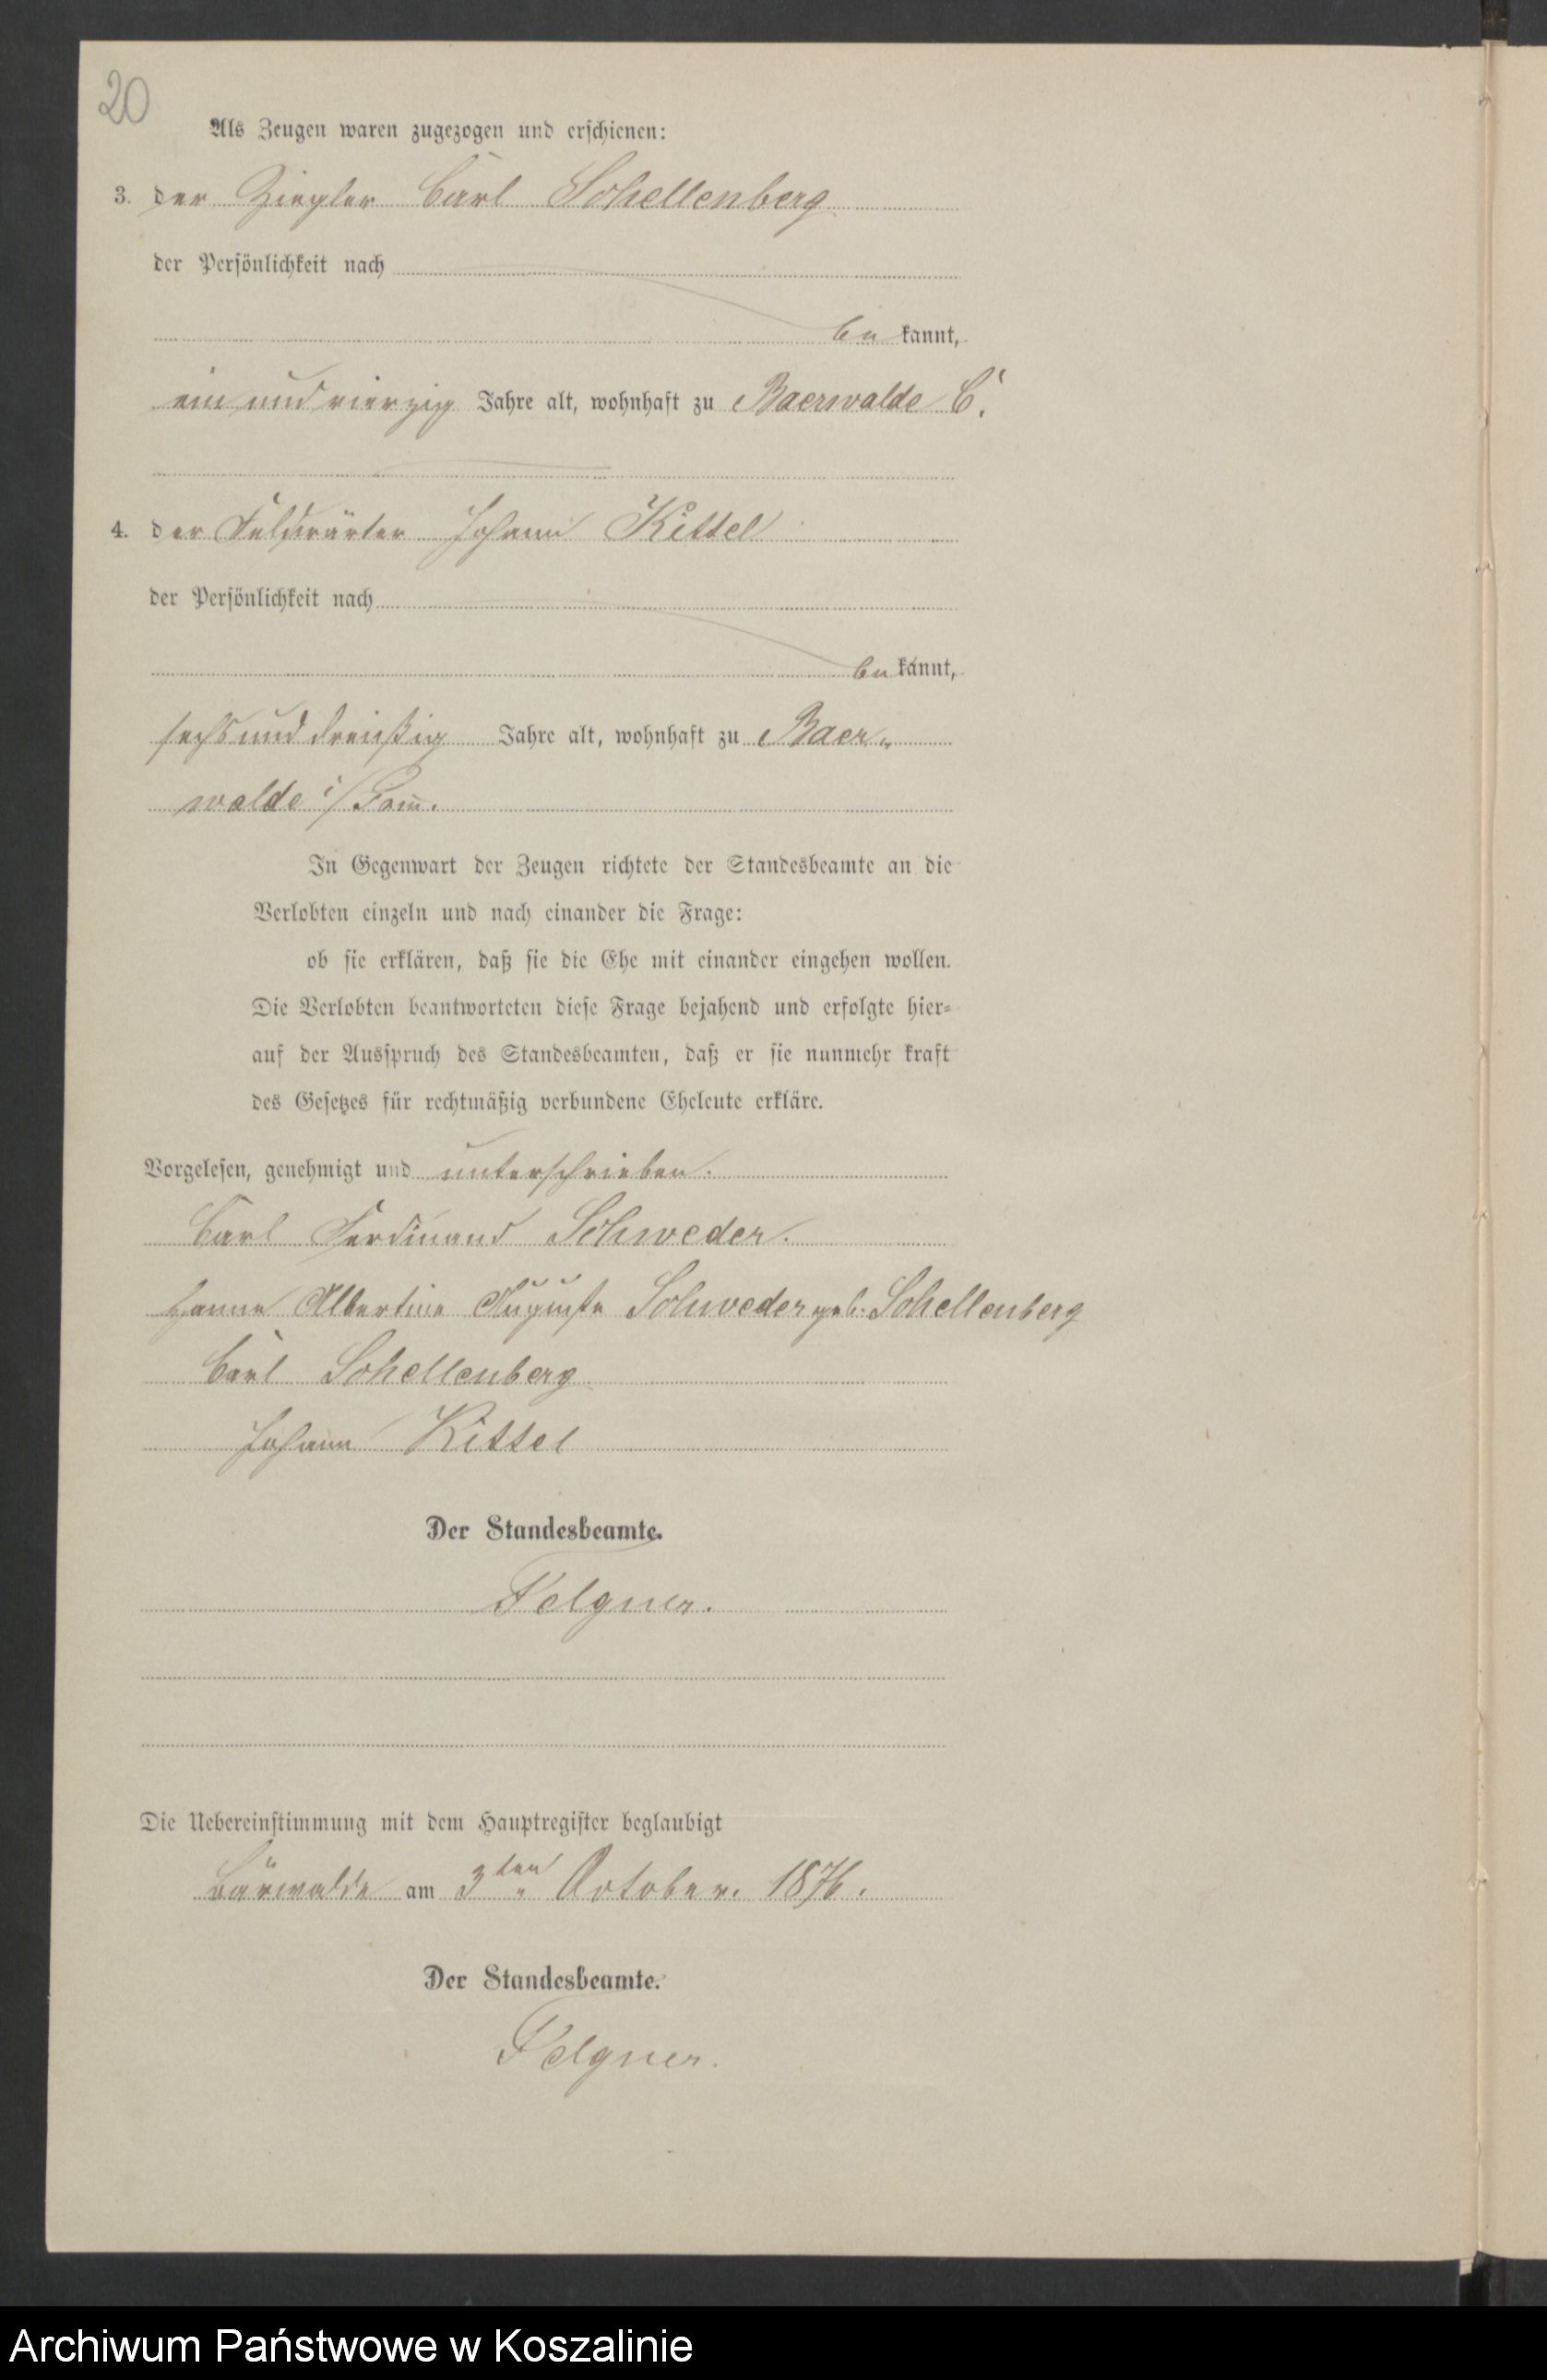 20
Als Zeugen waren zugezogen und erschienen:
3. der Ziegler Carl Schellenberg
der Persönlichkeit nach
be kannt,
ein und vierzig Jahre alt, wohnhaft zu Baerwalde C.
4. der Feldwärter Johann Kittel
der Persönlichkeit nach
be kannt,
sechs und dreißig Jahre alt, wohnhaft zu Baer„
walde i/Pom̄.
In Gegenwart der Zeugen richtete der Standesbeamte an die
Verlobten einzeln und nach einander die Frage:
ob sie erklären, daß sie die Ehe mit einander eingehen wollen.
Die Verlobten beantworteten diese Frage bejahend und erfolgte hier=
auf der Ausspruch des Standesbeamten, daß er sie nunmehr kraft
des Gesetzes für rechtmäßig verbundene Eheleute erkläre.
Vorgelesen, genehmigt und unterschrieben.
Carl Ferdinand Schweder.
Hanne Albertine Auguste Schweder geb. Schellenberg
Carl Schellenberg
Johann Kittel
Der Standesbeamte.
Felgner.
Die Uebereinstimmung mit dem Hauptregister beglaubigt
Bärwalde am 3ten October. 1876.
Der Standesbeamte.
Felgner.
Archiwum Państwowe w Koszalinie